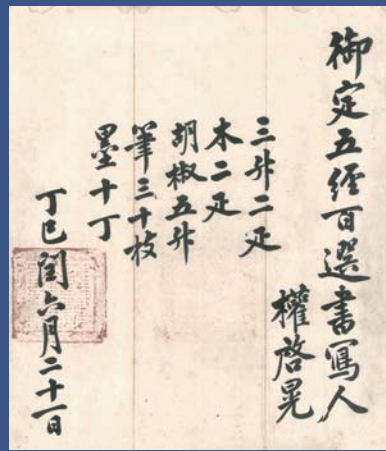 御定五經百選書寫人
權啓晃
三升二疋
木二疋
胡椒五升
筆三十枝
墨十丁
丁巳閏六月二十一日